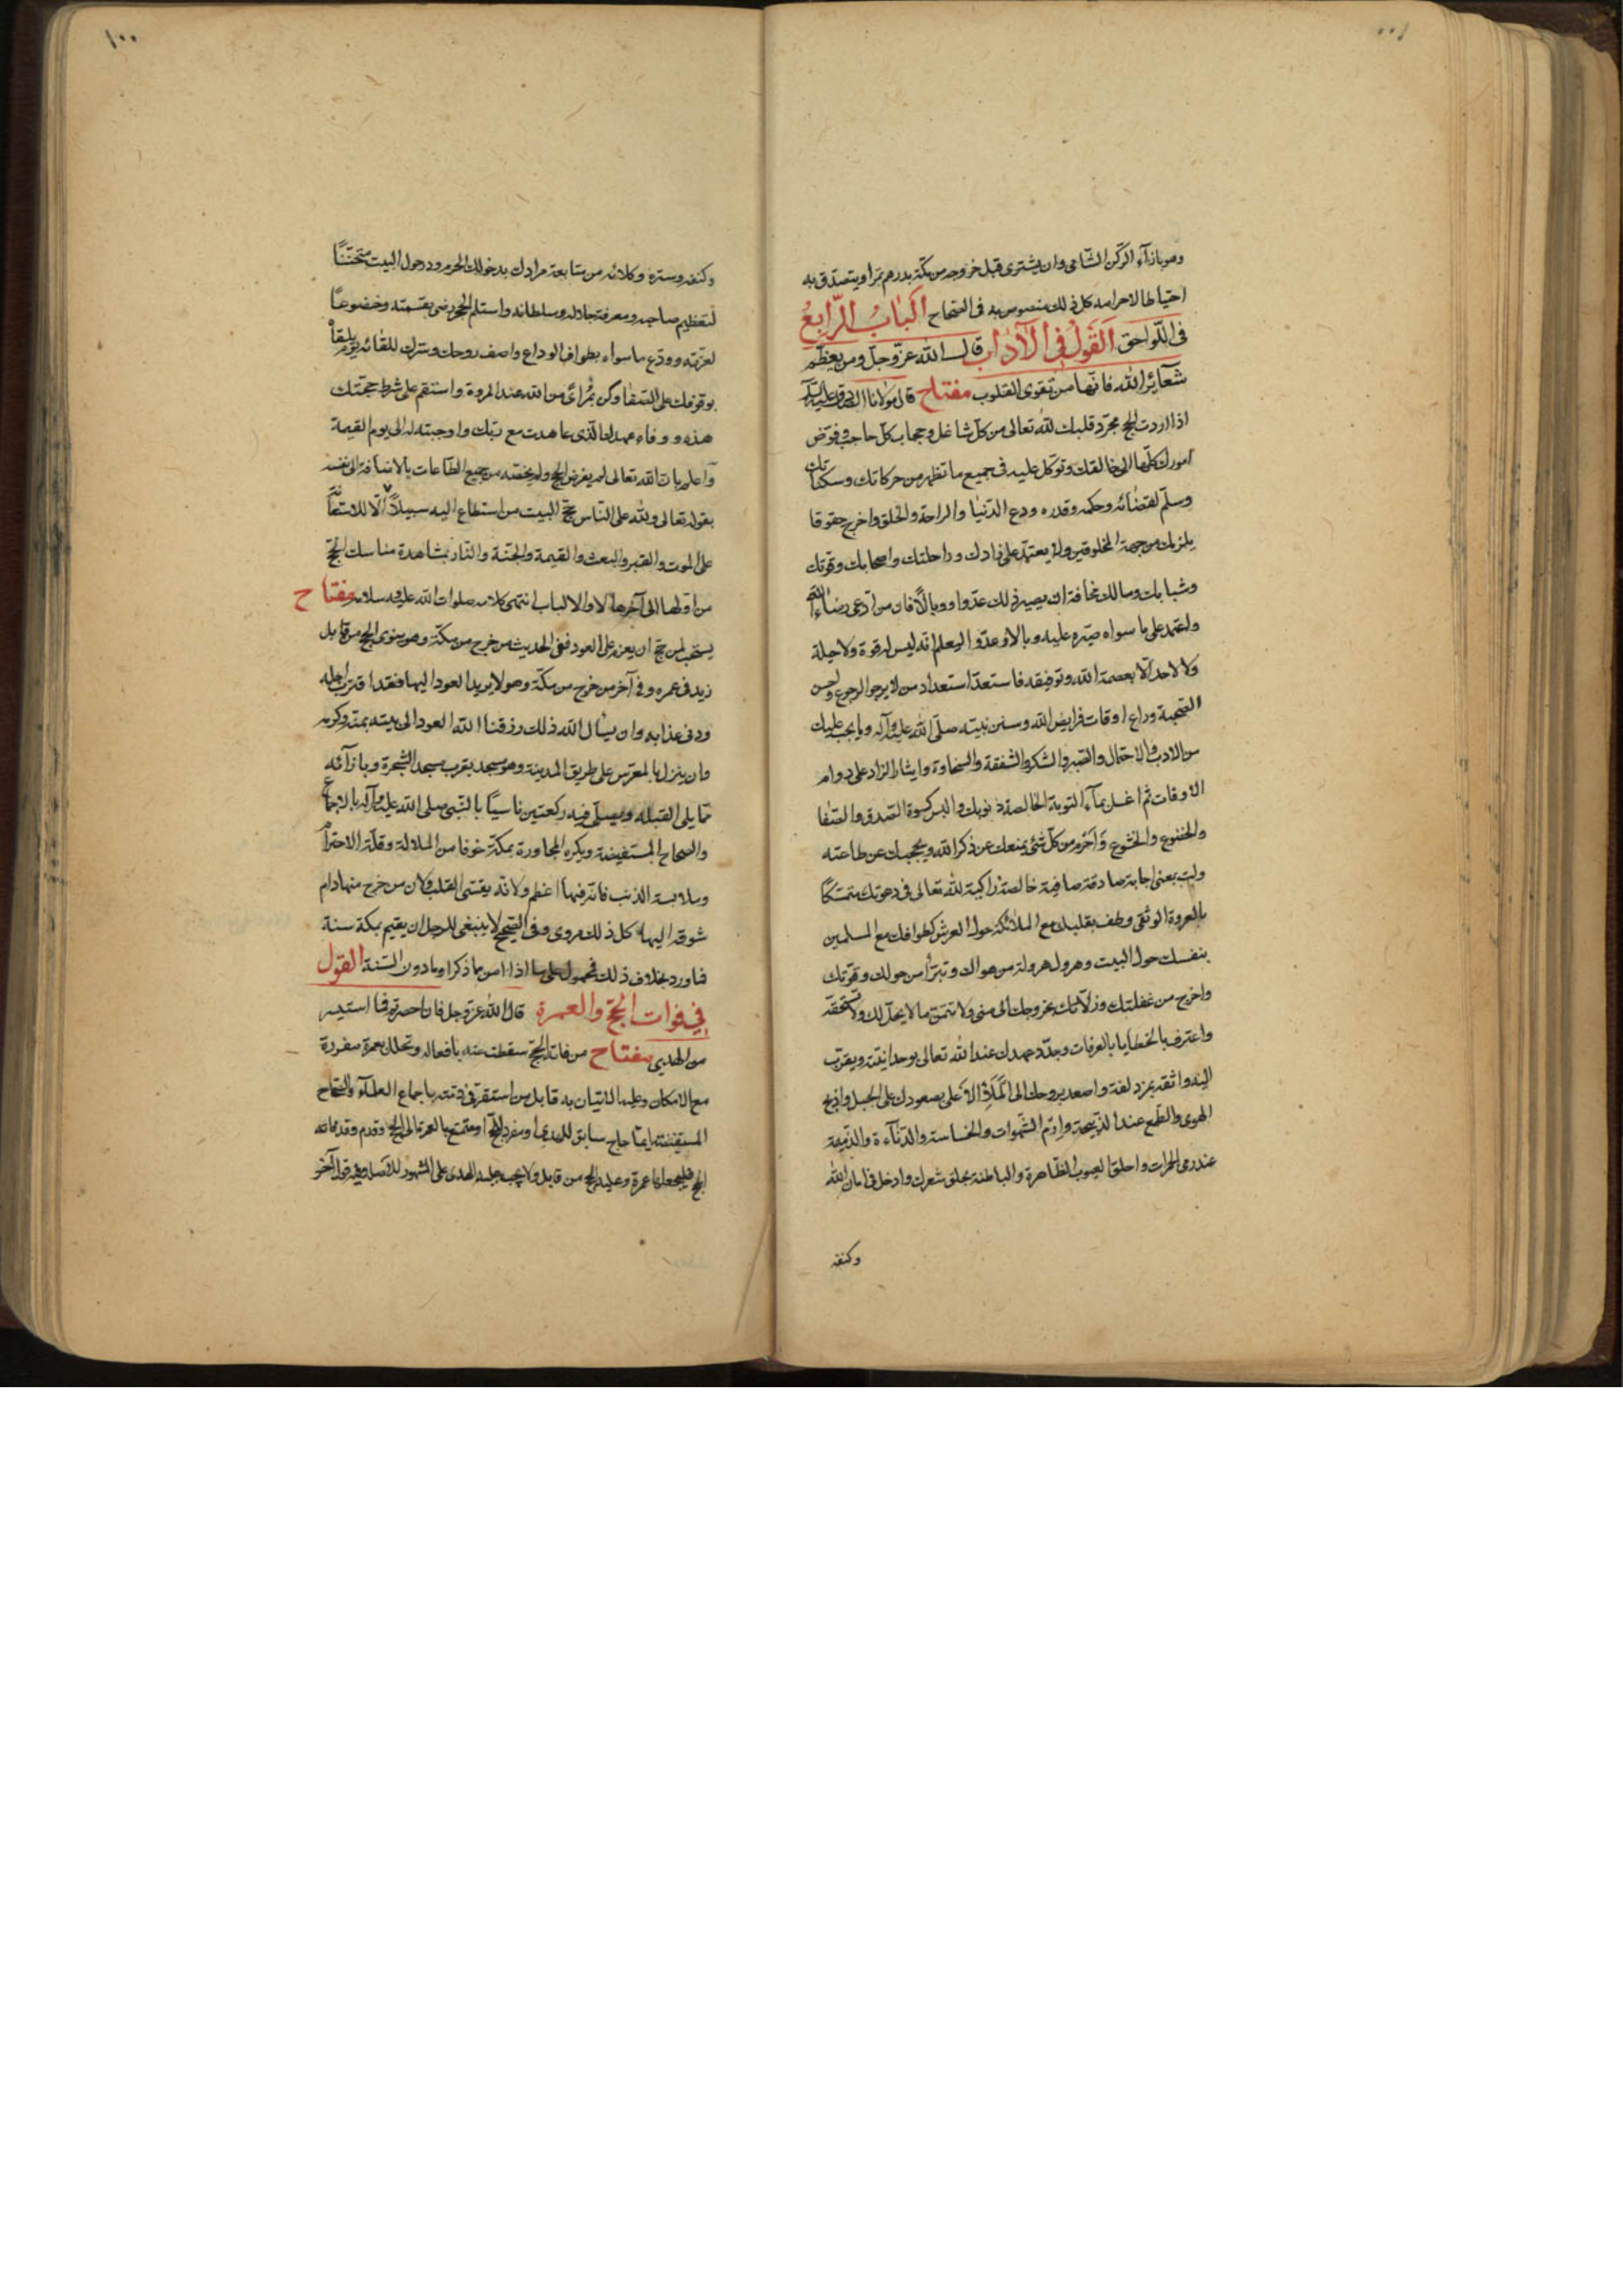 وهو بازآء الركن الشامى وان يشترى قبل خروجه من مكة بدرهم تمرا ويتصدق به
احتياطا لاحرامه كل ذلك منصوص به فى الصحاح الباب الرابع
فى اللواحق القول فى الآداب قال الله عز وجل ومن يعظم
شعائر الله فانها من تقوى القلوب مفتاح قال مولانا الصادق عليه السلام
اذا اردت الحج فجرد قلبك لله تعالى من كل شاغل وحجاب كل حاجب وفوض
امورك كلها الى خالقك وتوكل عليه فى جميع ما تظهر من حركاتك وسكناتك
وسلم لقضائه وحكمه وقدره ودع الدنيا والراحة والخلق واخرج حقوقا
يلزمك من جهة المخلوقين ولا يعتمد على زادك وراحلتك واصحابك وقوتك
وشبابك ومالك مخافة ان يصير ذلك عدوا ووبالا فان من ادعى رضاء الله
واعتمد على ما سواه صيره عليه وبالا وعدوا ليعلم انه ليس له قوة ولا حيلة
ولا لاحد الا بعصمة الله وتوفيقه فاستعد استعداد من لا يرجو الرجوع واحسن
الصحبة وراع اوقات فرايض الله وسنن نبيه صلى الله عليه وآله وما يجب عليك
من الادب والاحتمال والصبر والشكر والشفقة والسخاوة وايثار الزاد على دوام
الاوقات ثم اغسل بمآء التوبة الخالصة ذنوبك والبس كسوة الصدق والصفا
والخضوع والخشوع واحرم من كل شئ يمنعك عن ذكر الله ويحجبك عن طاعته
ولب بمعنى اجابة صادقة صافية خالصة زاكية لله تعالى فى دعوتك متمسكا
بالعروة الوثقى وطف بقلبك مع الملائكة حول العرش كطوافك مع المسلمين
بنفسك حول البيت وهرول هرولة من هواك وتبرأ من حولك وقوتك
واخرج من غفلتك وزلاتك بخروجك الى منى ولا تتمن ما لا يحل لك ولا تستحقه
واعترف بالخطايا بالعرفات وجدد عهدك عند الله تعالى بوحدانيته ويقرب
اليه واثقه بمزدلفة واصعد بروحك الى الملاذ الاعلى بصعودك على الجبل واذبح
الهوى والطمع عند الذبيحة وارم الشهوات والخساسة والدنآءة والذميمة
عند رمى الجمرات واحلق العيوب الظاهرة والباطنة بحلق شعرك وادخل فى امان الله
وكنفه
١٠٠
وكنفه وستره وكلائه من متابعة مرادك بدخولك الحرم ودر حول البيت متحققا
لتعظيم صاحبه ومعرفة جلاله وسلطانه واستلم الحجر رضى بقسمته وخضوعا
لعزته وودع ما سواه بطواف الوداع واصف روحك وسرك للقائه يوم يلقاه
بوقوفك على الصفا وكن بمرأى من الله عند المروة واستقم على شرط حجتك
هذه ووفاء عهدك الذى عاهدت مع ربك واوجبته له الى يوم القيمة
واعلم بان الله تعالى لم يفرض الحج ولم يخصه من جميع الطاعات بالاضافة الى نفسه
بقوله تعالى ولله على الناس حج البيت من استطاع اليه سبيلا الا للاستعا
على الموت والقبر والبعث والقيمة والجنة والنار بمشاهدة مناسك الحج
من اولها الى آخرها لاولى الالباب انتهى كلامه صلوات الله عليه وسلامه مفتاح
يستحب لمن حج ان يعزم على العود ففى الحديث من خرج من مكة وهو ينوى الحج من قابل
زيد فى عمره وفى آخر من خرج من مكة وهو لا يريد العود اليها فقد اقترب اجله
ودنى عذابه وان يسأل الله ذلك ورزقنا الله العود الى بيته بمنه وكرمه
وان ينزل بالمعرس على طريق المدينة وهو مسجد بقرب مسجد الشجرة وبازآئه
مما يلى القبلة ويصلى فيه ركعتين تاسيا بالنبى صلى الله عليه وآله بالاجماع
والصحاح المستفيضة ويكره المجاورة بمكة خوفا من الملالة وقلة الاحترام
وملابسة الذنب فانه فيها اعظم ولانه يقسى القلب ولان من خرج منها دام
شوقه اليها كل ذلك مروى وفى الصحيح لا ينبغى للرجل ان يقيم بمكة سنة
فما ورد بخلاف ذلك فمحمول على ما اذا امن ما ذكر او ما دون السنة القول
فى فوات الحج والعمرة قال الله عز وجل فان احصرتم فما استيسر
من الهدى مفتاح من فاته الحج سقطت عنه بافعاله وتحلل بعمرة مفردة
مع الامكان وعليه الاتيان به قابل من استقر فى ذمته باجماع العلمآء والصحاح
المستفيضة ايما حاج سابق للهدى او مفرد للحج او متمتع بالعمرة الى الحج وقدم وقد فاته
الحج فليجعلها عمرة وعليه الحج من قابل ولا يجب عليه الهدى على المشهور للاصل وفيه قول آخر